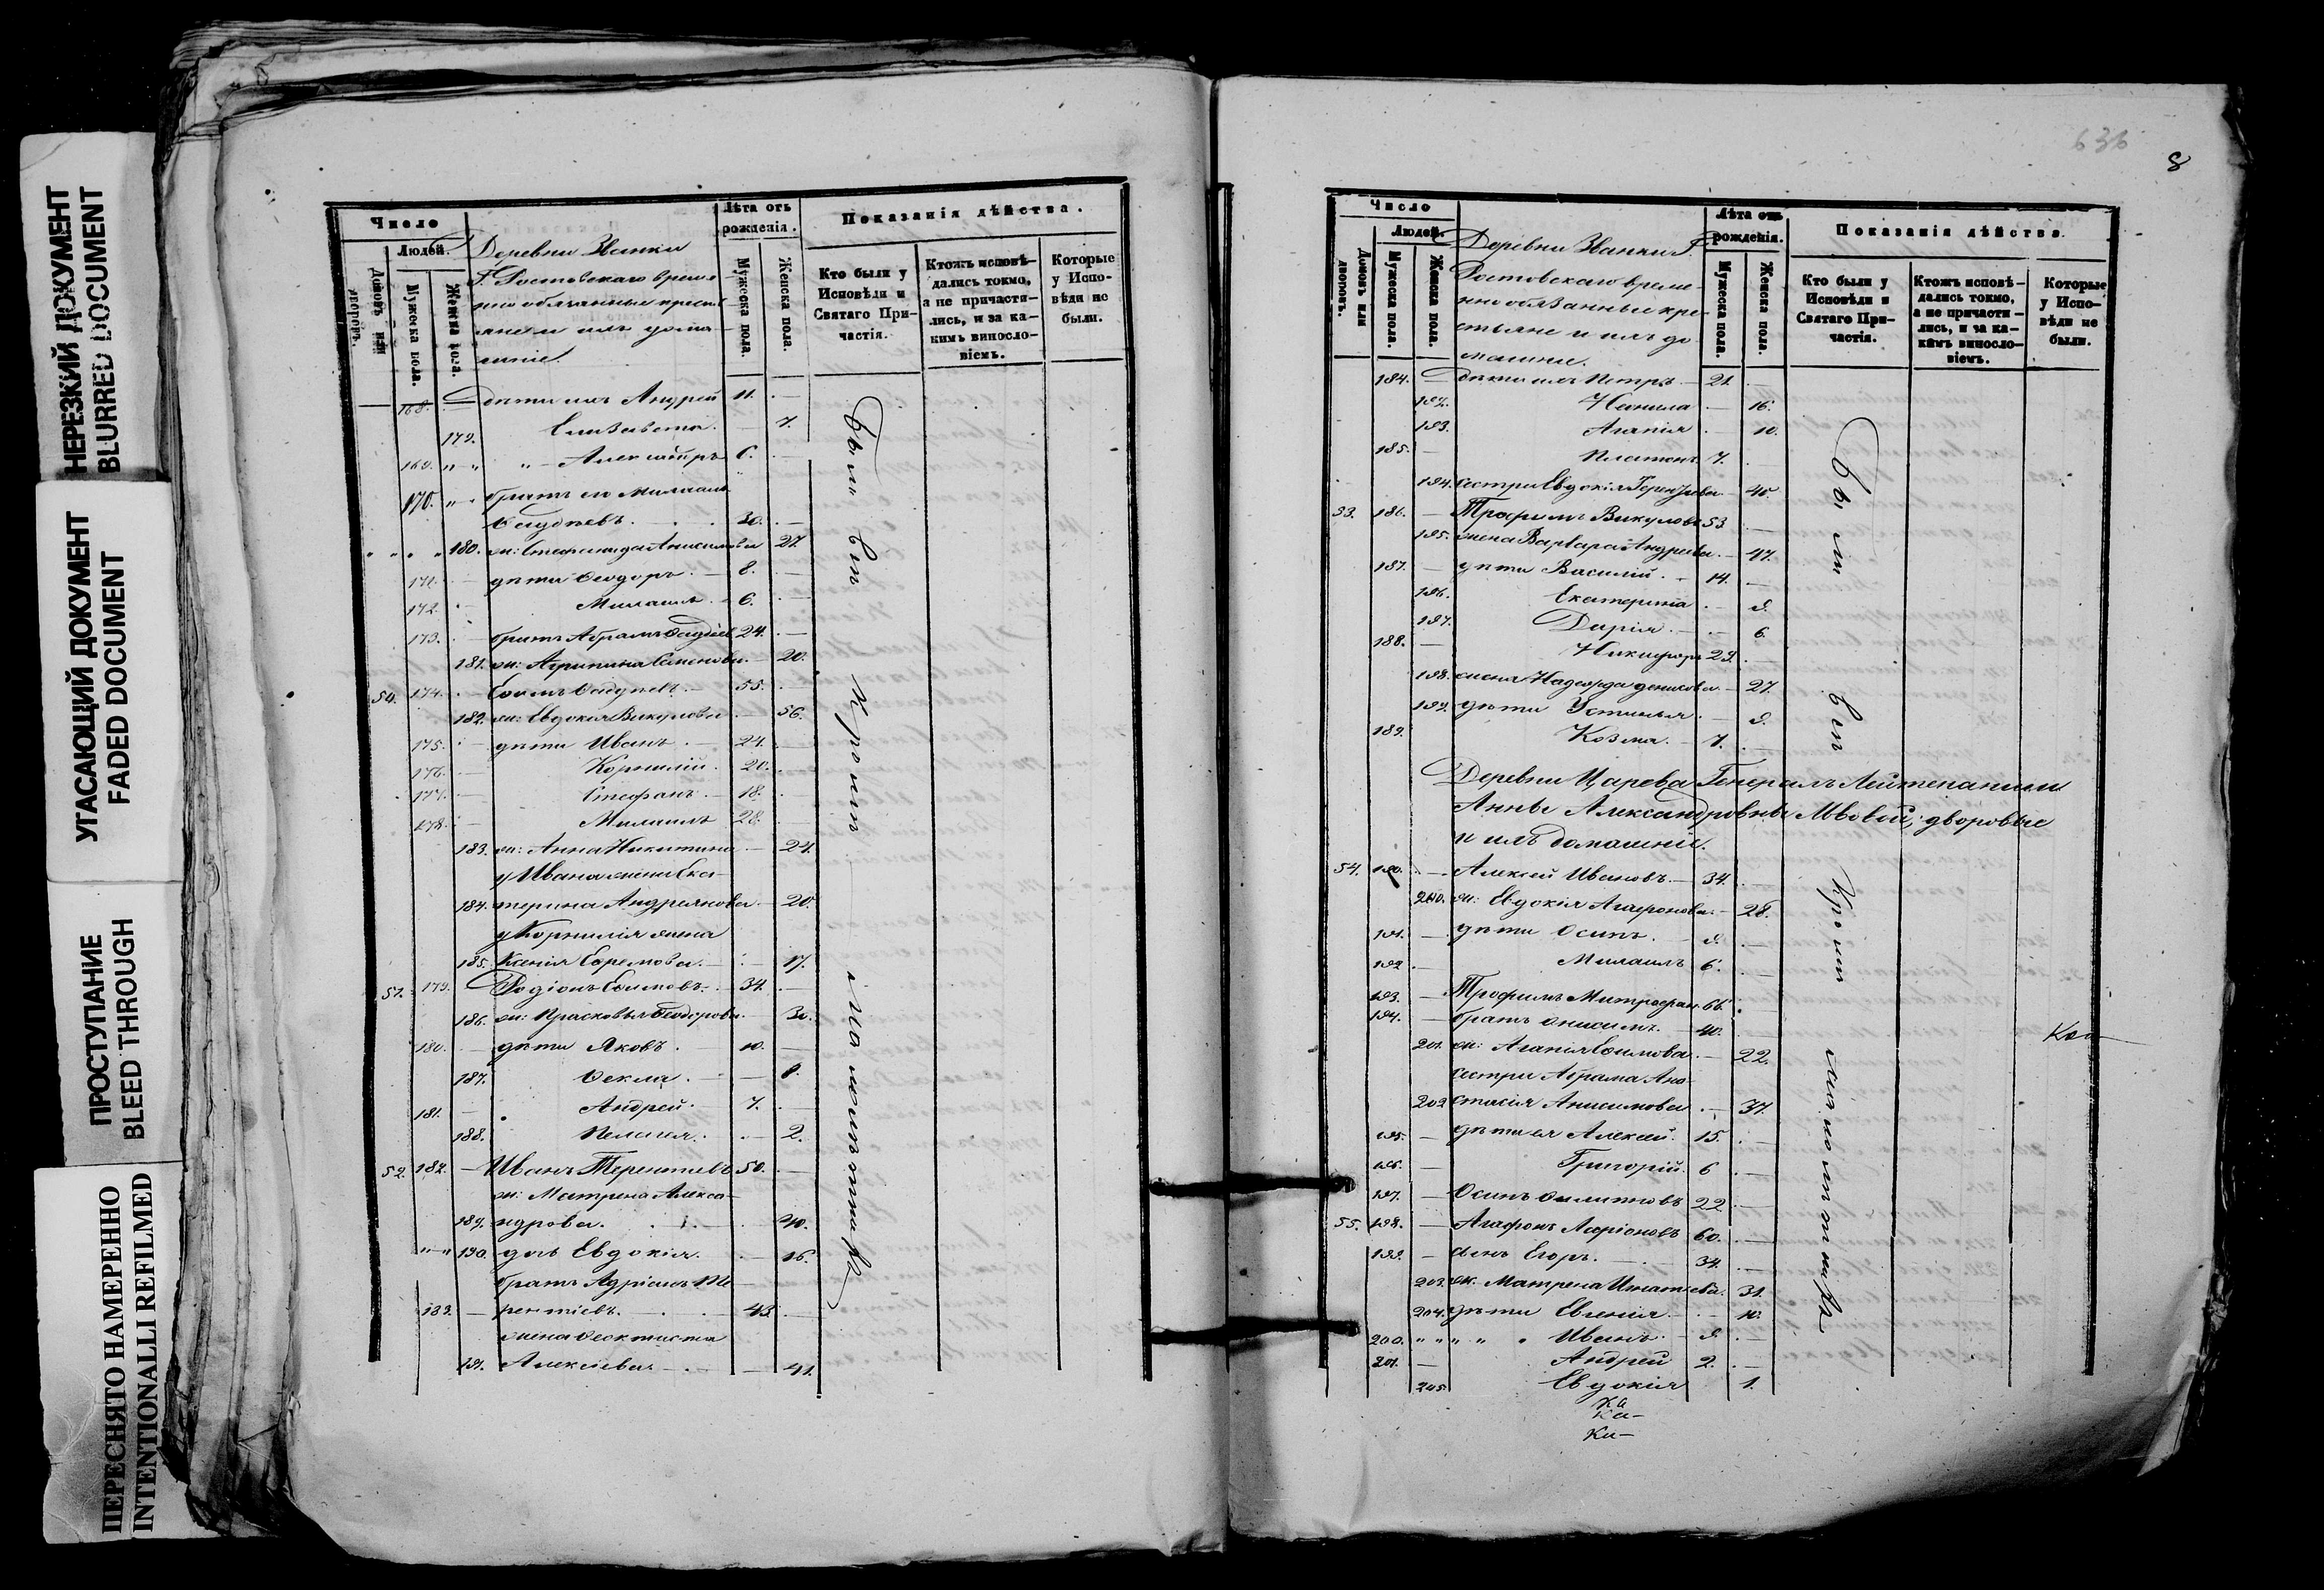 НЕРЕЗКИЙ ДОКУМЕНТ
BLURRED DOCUMENT
УГАСАЮЩИЙ ДОКУМЕНТ
FADED DOCUMENT
ПРОСТУПАНИЕ
BLEED THROUGH
ПЕРЕСНЯТО НАМЕРЕННО
INTENTIONALLI REFILMED
Число
Людей.
Домовъ или дворовъ.
Мужеска пола.
Женска пола.
Деревни Званки
Г. Ростовскаго време
нно обязанные крест
яне и ихъ дома
шніе.
Лѣта отъ рожденія.
Мужеска пола.
Женска пола.
Показанія дѣйства.
Кто были у Исповѣди и Святаго Причастія.
Ктожъ исповѣдались токмо, а не причастились, и за какимъ винословіемъ.
Которые у Исповѣди не были.
168. дѣти ихъ Андрей 11.
179. Елизавета. 7.
169. Александръ 6.
170. братъ его Михаилъ
Ѳадѣевъ. 30.
180. ж: Стефанида Анисимова 27.
171. дѣти Ѳеодоръ. 8.
172. Михаилъ. 6.
173. братъ Абрамъ Ѳадѣев 24.
181. ж: Агрипина Семенова. 20.
50. 174. Ефимъ Ѳадѣевъ. 55.
182. ж: Евдокія Викулова 56.
175. дѣти Иванъ. 24.
176. Корнилій. 20.
177. Стефанъ. 18.
178. Михаилъ 28.
183. ж: Анна Никитина 24.
у Ивана жена Ека
184. терина Андреянова 20.
у Корнилія жена
185. Ксенія Ефремова. 17.
51. 179. Родіонъ Ефимовъ. 34.
186. ж: Прасковья Ѳеодорова. 30.
180. дѣти Яковъ. 10.
187. Ѳекла. 8.
181. Андрей. 7.
188. Пелагея. 2.
52. 182. Иванъ Терентьевъ 50.
ж: Матрена Алекса
189. ндрова. 40.
190. дочь Евдокія. 16.
братъ Адріанъ Те
183. рентіевъ. 43.
жена Ѳеоктиста
191. Алексѣева. 41.
Были въ
636
8
Число
Людей.
Домовъ или дворовъ.
Мужеска пола.
Женска пола.
Деревни Званки Г.
Ростовскаго време
нно обязанные кре
стьяне и ихъ до
машніе.
Лѣта отъ рожденія.
Мужеска пола.
Женска пола.
Показанія дѣйства.
Кто были у Исповѣди и Святаго Причастія.
Ктожъ исповѣдались токмо, а не причастились, и за какимъ винословіемъ.
Которые у Исповѣди не были.
184. дѣти ихъ Петръ. 21.
192. Неонила 16.
193. Агапія 10.
185. Платонъ. 7.
194. сестра Евдокія Терентьева 45.
53. 186. Трофимъ Викуловъ 53
195. жена Варвара Андреева. 47.
187. дѣти Василій. 14.
196. Екатерина 9.
197. Дарія. 6.
188. Никифоръ 29.
198. жена Надежда 27.
199. дѣти Устинья. 9.
189. Козма. 7.
Деревни Царева Генералъ Лейтенантши
Анны Александровны Львовой, дворовые
и ихъ домашніе.
54. 190. Алексей Ивановъ. 34.
200. ж: Евдокія Агафонова. 28.
191. дѣти Осипъ. 9.
192. Михаилъ 6.
193. Трофимъ Митрофан. 66.
194. братъ Анисимъ. 40.
201. ж: Агапія Ефимова. 22.
сестра Абрама Ана
202 стасія Анисимова 37.
195. дѣти ея Алексей. 15.
196. Григорій. 6
197. Осипъ 22
55. 198. Агафонъ Ларіоновъ 60.
199. сынъ Егоръ. 34.
203. ж: Матрена Игнатьева. 31.
204. дѣти Евгенія. 10.
200. Иванъ. 9.
201. Андрей 2.
205. Евдокія 1.
Были въ
Ка
Ка-